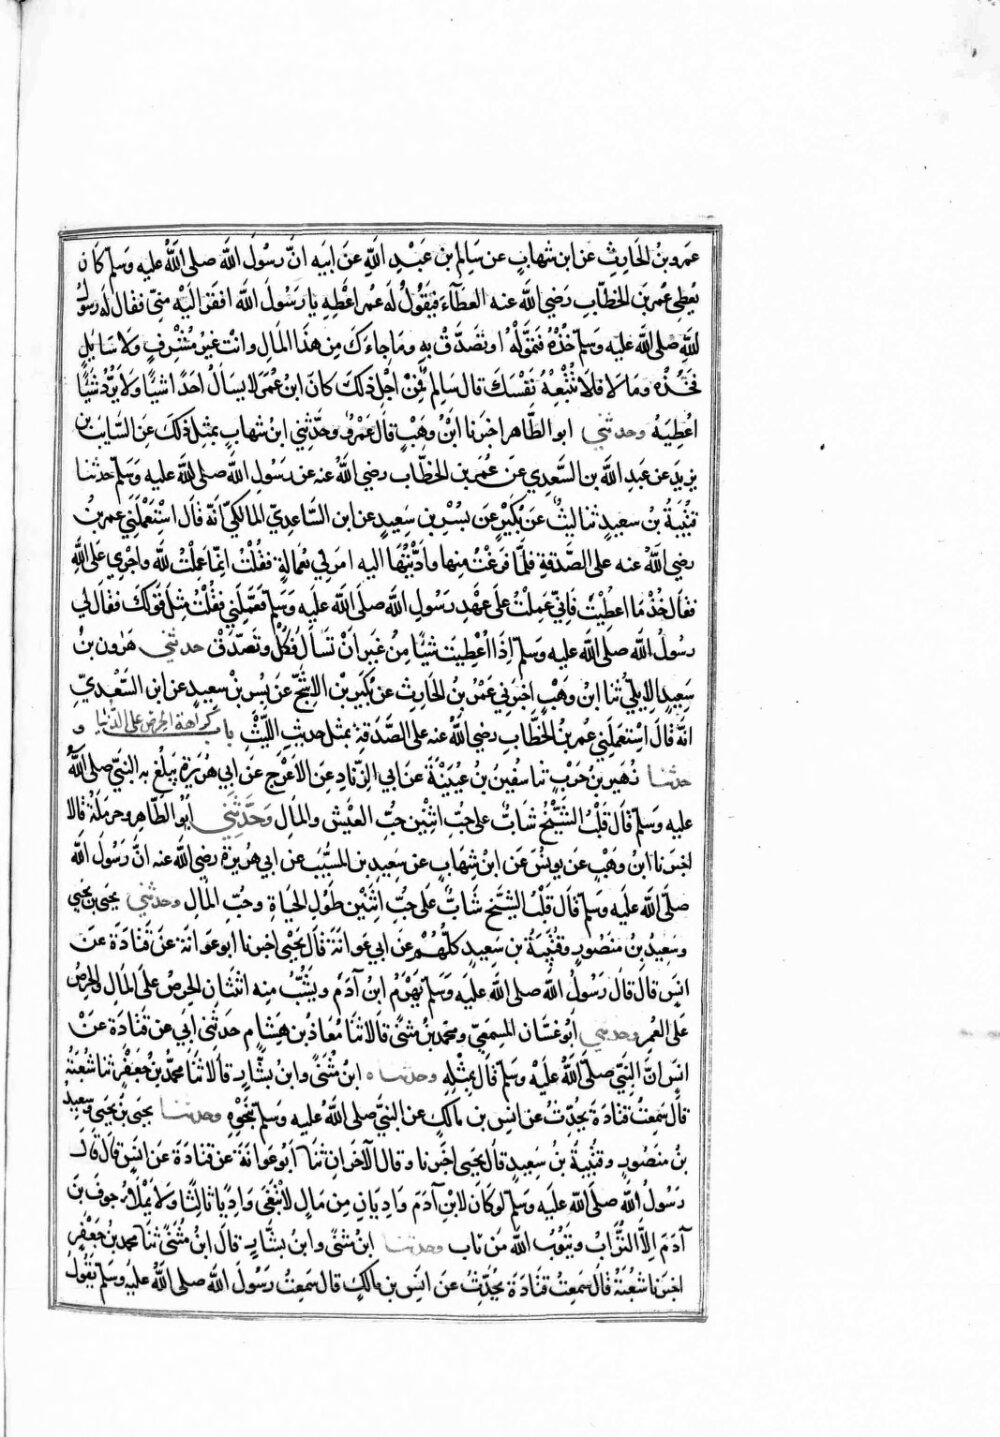 عمرو بن الحارث عن ابن شهاب عن سالم بن عبد الله عن ابيه انّ رسول الله صلى الله عليه وسلم كان
يعطي عمر بن الخطاب رضي الله عنه العطآء فيقول له عمر اعطه يا رسول الله افقر اليه منّي فقال له رسول
الله صلى الله عليه وسلم خذه فتموّله او تصدّق به وما جاءك من هذا المال وانت غير مشرف ولا سائل
فخذه وما لا فلا تتبعه نفسك قال سالم فمن اجل ذلك كان ابن عمر لا يسأل احدا شيئًا ولا يردّ شيئًا
اعطيه وحدثني ابو الطاهر اخبرنا ابن وهب قال عمرو وحدّثني ابن شهاب بمثل ذلك عن السّايب بن
يزيد عن عبد الله بن السّعدي عن عمر بن الخطاب رضي الله عنه عن رسول الله صلى الله عليه وسلم حدثنا
قتيبة بن سعيد ثنا ليث عن بكير عن بسر بن سعيد عن ابن السّاعدي المالكيّ انّه قال استعملني عمر بن
رضي الله عنه على الصّدقة فلمّا فرغت منها وادّيتها اليه امر لي بعمالة فقلت انّما عملت لله واجري على الله
فقال خذ ما اعطيت فانّي عملت على عهد رسول الله صلى الله عليه وسلم فعمّلني فقلت مثل قولك فقال لي
رسول الله صلى الله عليه وسلم اذا اعطيت شيئًا من غير ان تسأل فكل وتصدّق حدثني هرون بن
سعيد الايليّ ثنا ابن وهب اخبرني عمرو بن الحارث عن بكير بن الاشجّ عن بسر بن سعيد عن ابن السّعديّ
انّه قال استعملني عمر بن الخطاب رضي الله عنه على الصّدقة بمثل حديث اللّيث باب كراهة الحرص على الدنيا و
حدثنا زهير بن حرب ثنا سفين بن عيينة عن ابي الزّناد عن الاعرج عن ابي هريرة يبلغ به النبي صلى الله
عليه وسلم قال قلب الشّيخ شابّ على حبّ اثنين حبّ العيش والمال وحدّثني ابو الطاهر وحرملة قالا
اخبرنا ابن وهب عن يونس عن ابن شهاب عن سعيد بن المسيّب عن ابي هريرة رضي الله عنه انّ رسول الله
صلى الله عليه وسلم قال قلب الشّيخ شابّ على حبّ اثنين طول الحياة وحبّ المال وحدثني يحيى بن يحيى
وسعيد بن منصور وقتيبة بن سعيد كلّهم عن ابي عوانة قال يحيى اخبرنا ابو عوانة عن قتادة عن
انس قال قال رسول الله صلى الله عليه وسلم يهرم ابن آدم ويشبّ منه اثنتان الحرص على المال والحرص
على العمر وحدثني ابو غسّان المسمعيّ ومحمد بن مثنى قالا ثنا معاذ بن هشام حدّثني ابي عن قتادة عن
انس انّ النبيّ صلى الله عليه وسلم قال بمثله وحدثناه ابن مثنى وابن بشّار قالا ثنا محمد بن جعفر ثنا شعبة
قال سمعت قتادة يحدّث عن انس بن مالك عن النبي صلى الله عليه وسلم بنحوه وحدثنا يحيى بن يحيى وسعيد
بن منصور وقتيبة بن سعيد قال يحيى اخبرنا وقال الآخران ثنا ابو عوانة عن قتادة عن انس قال قال
رسول الله صلى الله عليه وسلم لو كان لابن آدم واديان من مال لابتغى واديا ثالثًا ولا يملأ جوف بن
آدم الّا التّراب ويتوب الله من تاب وحدثنا ابن مثنى وابن بشّار قال ابن مثنى ثنا محمد بن جعفر
اخبرنا شعبة قال سمعت قتادة يحدّث عن انس بن مالك قال سمعت رسول الله صلى الله عليه وسلم يقول